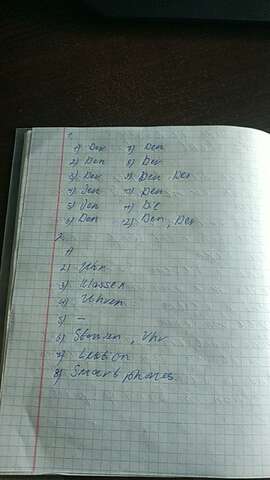 1.
1) Der 7) Den
2) Den 8) Der
3) Der 9) Den, Der
4) Den Den
5) Den Die
6) Den Den, Der
2.
A
2) Uhr
3) Klassen
4) Uhren
5) –
6) Stunden, Uhr
7)
8) Smartphones